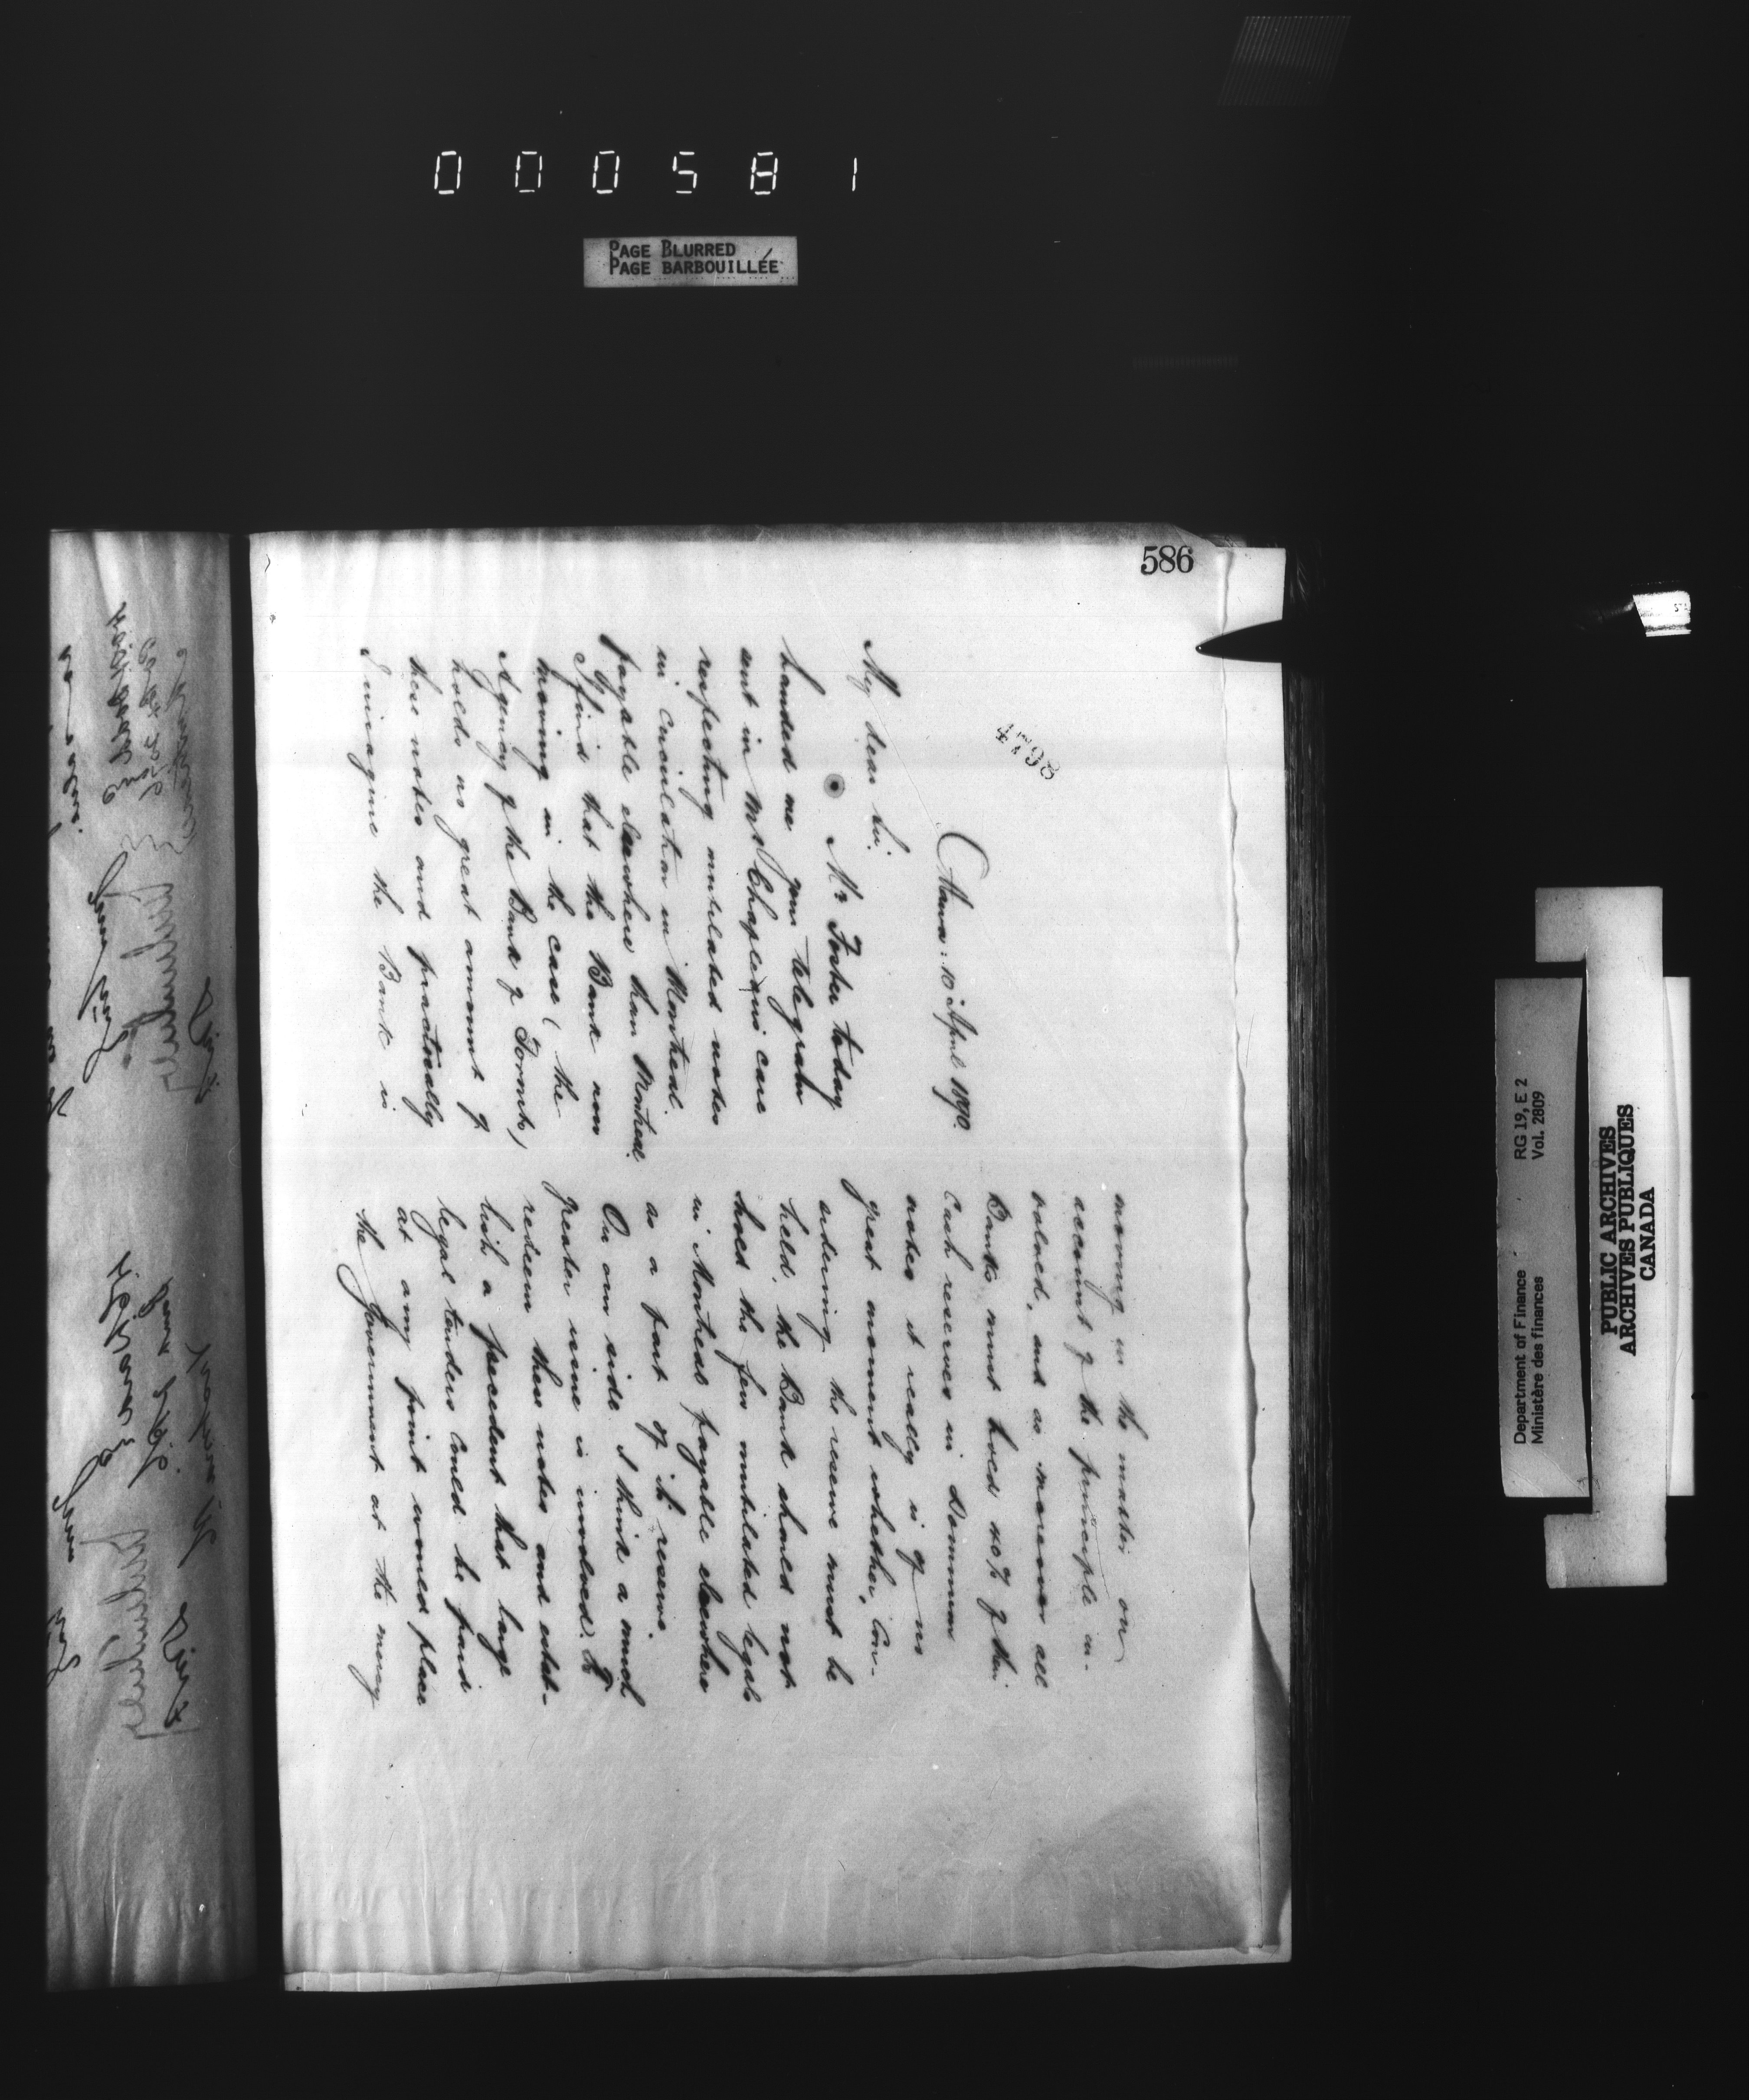 000581
PAGE BLURRED
PAGE BARBOUILLÉE
586
4798
Ottawa: 10 April 1890.
My dear Sir.
Mr Foster today
handed me your telegram
sent in Mr Chapleau's care
respecting mutilated notes
in circulation in Montreal.
payable elsewhere than Montreal.
I find that the Bank now
moving in the case (the
Agency of the Bank of Toronto,
holds no great amount of
these notes and practically
I imagine the Bank is
moving in the matter on
account of the principle in-
volved, and as moreover all
Banks must hold 40% of their
Cash reserves in Dominion
notes it really is of no
great moment whether, con-
sidering the reserve must be
held, the Bank should not
hold the few mutilated legals
in Montreal payable elsewhere
as a part of its reserve.
On our side I think a much
greater issue is involved. To
redeem these notes and estab-
lish a precedent that large
legal tenders could be paid
at any point would place
the Government at the mercy
Department of Finance RG 19, E 2
Ministère des finances Vol. 2809
PUBLIC ARCHIVES
ARCHIVES PUBLIQUES
CANADA